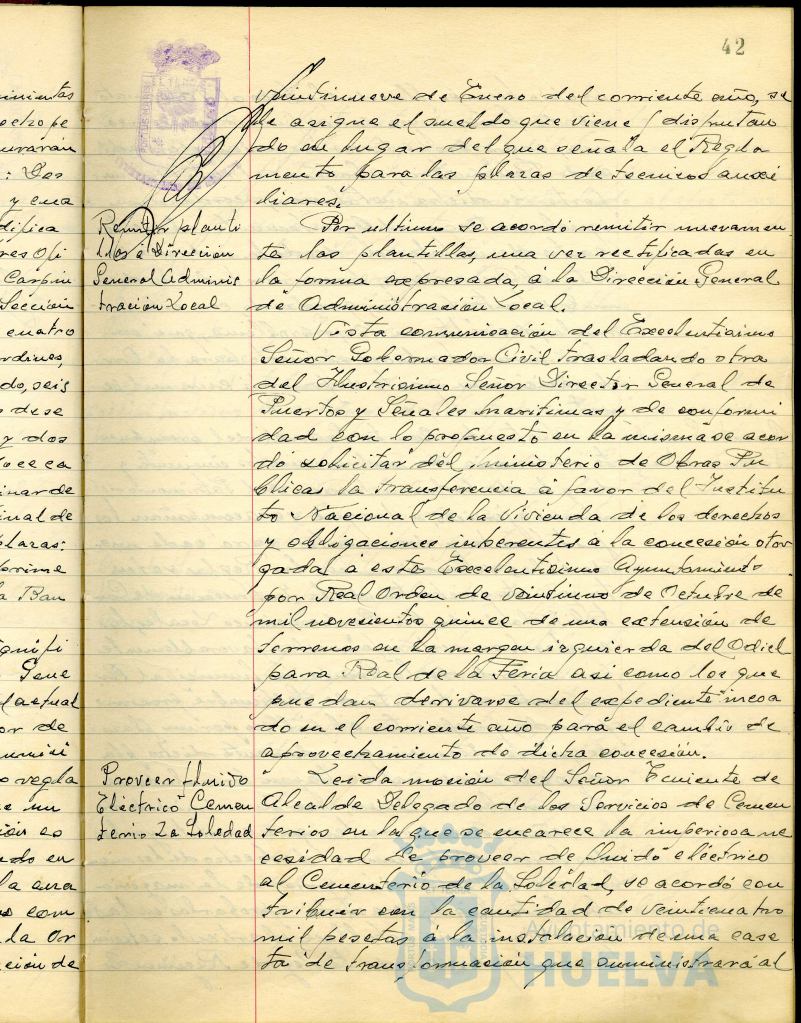 42
mientos
pecto pe
urarán
: Dos
y cua
difica
res Ofi
Carpin
Sección
cuatro
rdines,
do, seis
s de se
y dos
doce ca
inar de
inal de
plazas:
prime
a Ban
gnifi
Gene
l actual
or de
unici
o regla
e un
ión es
ado en
la cua
com
la Or
ción de
veintinueve de Enero del corriente año, se
le asigne el sueldo que viene disfrutan
do en lugar del que señala el Regla
mento para las plazas de tecnicos auxi
liares.
Remitir planti
llas a Dirección
General Adminis
tración Local
Por ultimo se acordó remitir nuevamen
te las plantillas, una vez rectificadas en
la forma expresada, á la Dirección General
de Administración Local.
Vista comunicación del Excelentisimo
Señor Gobernador Civil trasladando otra
del Ilustrisimo Señor Director General de
Puertos y Señales Maritimas y de conformi
dad con lo propuesto en la misma se acor
dó solicitar del Ministerio de Obras Pu
blicas la transferencia á favor del Institu
to Nacional de la Vivienda de los derechos
y obligaciones inherentes á la concesión otor
gada á este Excelentisimo Ayuntamiento
por Real Orden de veintiuno de Octubre de
mil novecientos quince de una extensión de
terrenos en la margen izquierda del Odiel
para Real de la Feria asi como los que
puedan derivarse del expediente incoa
do en el corriente año para el cambio de
aprovechamiento de dicha concesión.
Proveer fluido
Eléctrico Cemen
terio La Soledad
Leida moción del Señor Teniente de
Alcalde Delegado de los Servicios de Cemen
terios en la que se encarece la imperiosa ne
cesidad de proveer de fluido eléctrico
al Cementerio de la Soledad, se acordó con
tribuir con la cantidad de veinticuatro
mil pesetas á la instalación de una case
ta de transformación que suministrará al
Ayuntamiento de
HUELVA